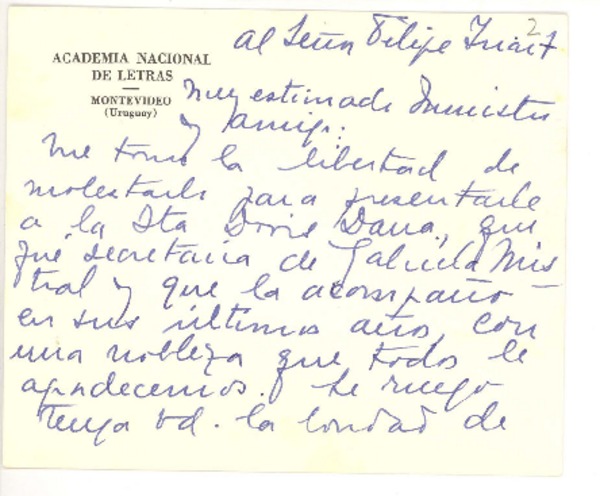 2
al Señor Felipe
ACADEMIA NACIONAL
DE LETRAS
MONTEVIDEO
(Uruguay)
Muy estimado Ministro
y amigo:
Me tomo la libertad de
molestarle para presentarle
a la Sta Doris Dana, que
fué secretaria de Gabriela Mis-
tral y que la acompañó
en sus últimos años, con
una nobleza que todos le
agradecemos. Le ruego
tenga Vd. la bondad de